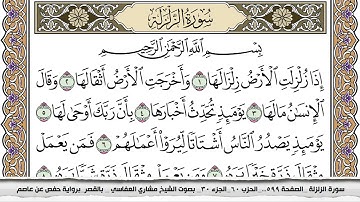 سُورَةُ الزَّلْزَلَةِ
بِسْمِ اللَّهِ الرَّحْمَٰنِ الرَّحِيمِ
إِذَا زُلْزِلَتِ الْأَرْضُ زِلْزَالَهَا ١ وَأَخْرَجَتِ الْأَرْضُ أَثْقَالَهَا ٢ وَقَالَ
الْإِنسَٰنُ مَا لَهَا ٣ يَوْمَئِذٍ تُحَدِّثُ أَخْبَارَهَا ٤ بِأَنَّ رَبَّكَ أَوْحَىٰ لَهَا ٥
يَوْمَئِذٍ يَصْدُرُ النَّاسُ أَشْتَاتًا لِّيُرَوْا أَعْمَٰلَهُمْ ٦ فَمَن يَعْمَلْ
سورة الزلزلة . الصفحة ٥٩٩ . الحزب ٦٠ . الجزء ٣٠ . بصوت الشيخ مشاري العفاسي . بالقصر برواية حفص عن عاصم